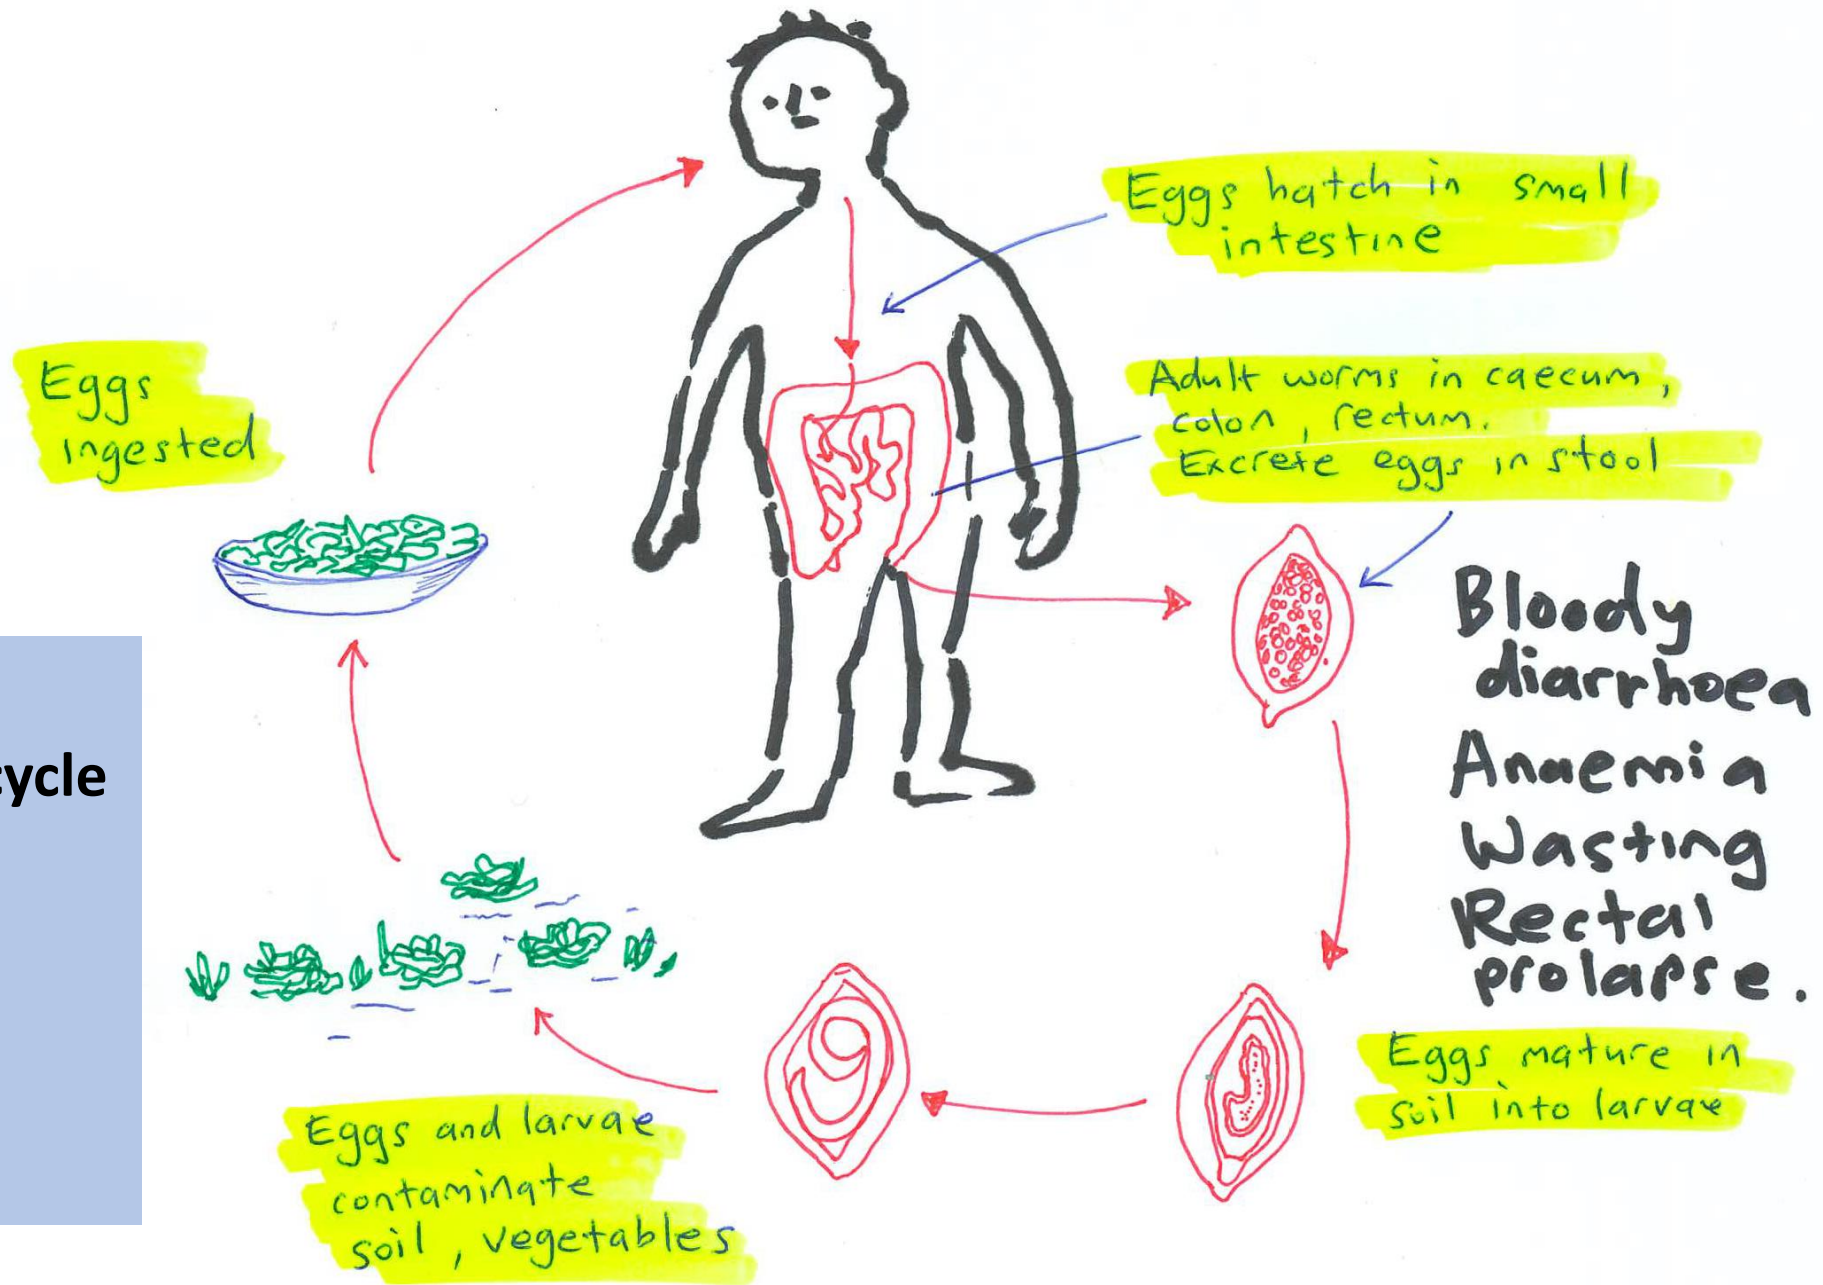 Eggs hatch in small
intestine
Eggs
ingested
Adult worms in caecum,
colon, rectum.
Excrete eggs in stool
Bloody
diarrhoea
Anaemia
Wasting
Rectal
prolapse.
cycle
Eggs mature in
soil into larvae
Eggs and larvae
contaminate
soil, vegetables